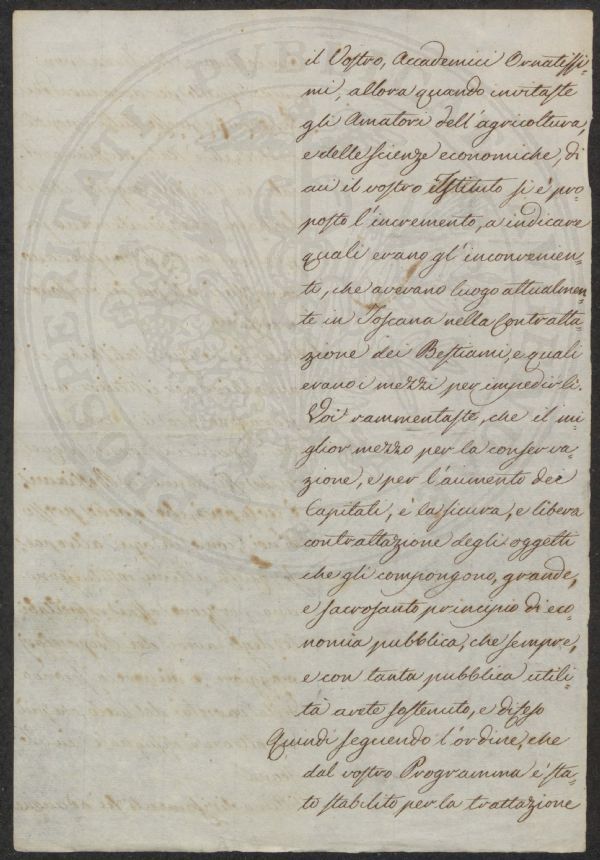 il Vostro, Accademici Ornatissi-
mi, allora quando invitaste
gli Amatori dell'agricoltura,
e delle scienze economiche, di
cui il vostro Istituto si è pro-
posto l'incremento, a indicare
quali erano gl'inconvenien-
ti, che avevano luogo attualmen-
te in Toscana nella Contratta-
zione dei Bestiami, e quali
erano i mezzi per impedirli.
Voi rammentaste, che il mi-
glior mezzo per la conserva-
zione, e per l'aumento dei
Capitali, è la sicura, e libera
contrattazione degli oggetti
che gli compongono, grande,
e sacrosanto principio di eco-
nomia pubblica, che sempre,
e con tanta pubblica utili-
tà avete sostenuto, e difeso
Quindi seguendo l'ordine, che
dal vostro Programma è sta-
to stabilito per la trattazione
PROSPERITATI PVBLICAE